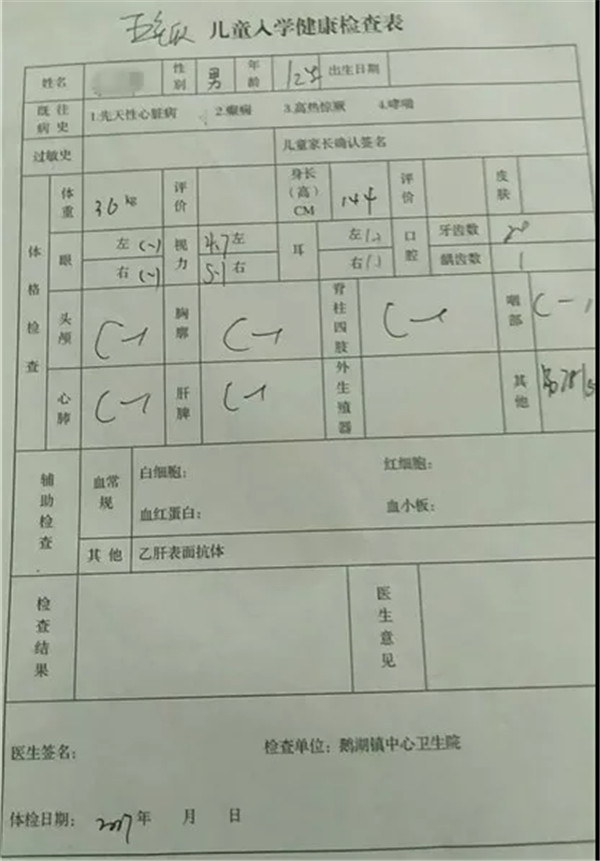 儿童入学健康检查表
姓名 性别 男 年龄 12岁 出生日期
既往病史 1.先天性心脏病 2.癫痫 3.高热惊厥 4.哮喘
过敏史 儿童家长确认签名
体格检查
体重 36kg 评价 身长(高)CM 144 评价 皮肤
眼 左(-) 视力 4.7左 耳 左(-) 口腔 牙齿数 20
右(-) 5.1右 右(-) 龋齿数 1
头颅 (-) 胸廓 (-) 脊柱四肢 (-) 咽部 (-)
心肺 (-) 肝脾 (-) 外生殖器 其他
辅助检查 血常规 白细胞: 红细胞:
血红蛋白: 血小板:
其他 乙肝表面抗体
检查结果 医生意见
医生签名: 检查单位:鹅湖镇中心卫生院
体检日期: 2017年 月 日